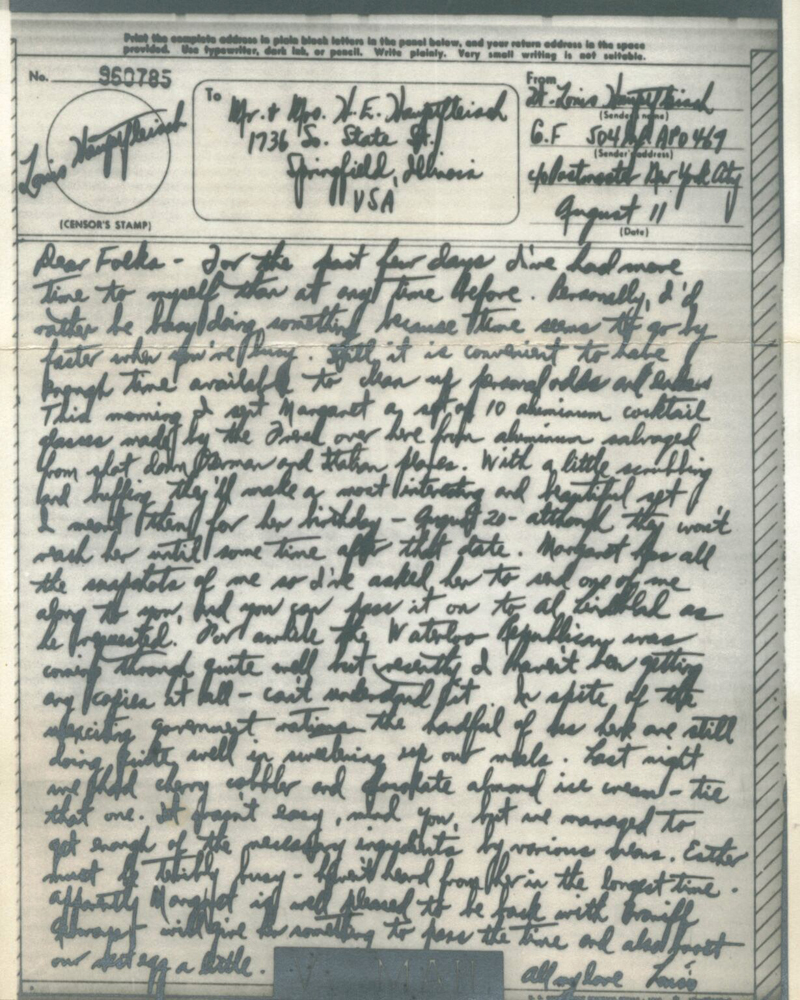 Print the complete address in plain block letters in the panel below, and your return address in the space
provided. Use typewriter, dark ink, or pencil. Write plainly. Very small writing is not suitable.
No. 960785
(CENSOR'S STAMP)
Louis Hauptfleisch
To
Mr. & Mrs. H. E. Hauptfleisch
1736 So. State St.
Springfield, Illinois
USA
From
Lt. Louis Hauptfleisch
(Sender's name)
G.F 504 APO 469
(Sender's address)
c/o Postmaster New York City
August 11
(Date)
Dear Folks - For the past few days I've had more
time to myself than at any time before. Personally, I'd
rather be busy doing something because time seems to go by
faster when you're busy. Still, it is convenient to have
enough time available to clean up personal odds and enders
This morning I sent Margaret a set of 10 aluminum cocktail
glasses made by the French over here from aluminum salvaged
from shot down German and Italian planes. With a little scrubbing
and buffing they'll make a most interesting and beautiful set
I meant them for her birthday - August 20 - although they won't
reach her until some time after that date. Margaret has all
the snapshots of me so I've asked her to send one of me
along to you, and you can pass it on to Al as
he requested. For awhile the Waterloo Republican was
coming through quite well but recently I haven't been getting
any copies at all - can't understand it. In spite of the
unexciting government rations the handful of us here are still
doing quite well in sweetening up our meals. Last night
we had cherry cobbler and chocolate almond ice cream - tie
that one. It wasn't easy, mind you, but we managed to
get enough of the necessary ingredients by various means. Esther
must be terribly busy - haven't heard from her in the longest time.
Apparently Margaret is well pleased to be back with Braniff
will give her something to pass the time and also boost
our nest egg a little.
All my love Louis
V-MAIL